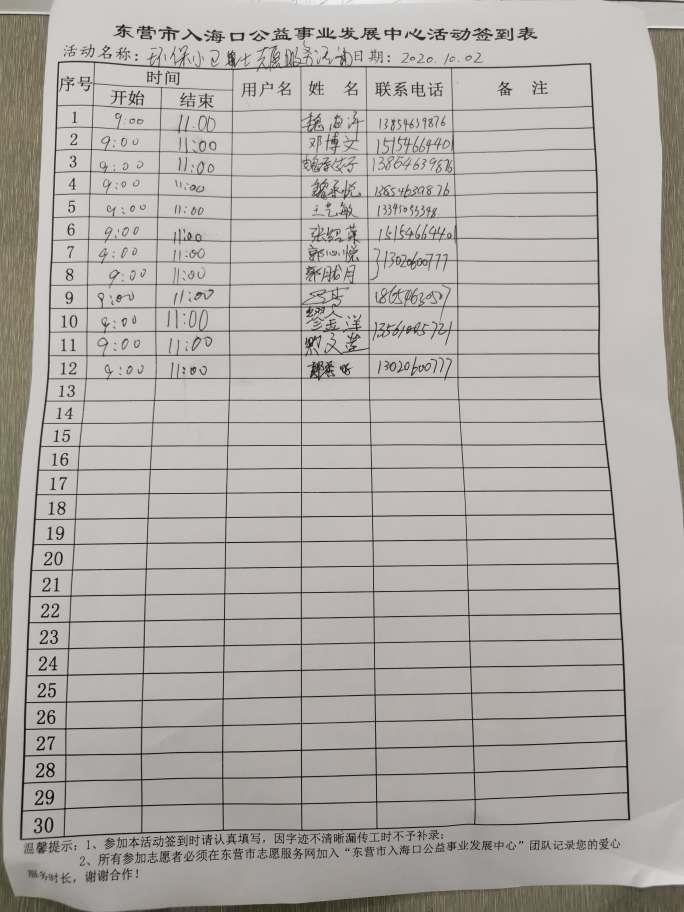 东营市入海口公益事业发展中心活动签到表
活动名称：环保小卫士志愿服务活动 日期：2020.10.02
序号 时间 用户名 姓 名 联系电话 备 注
开始 结束
1 9:00 11:00 13854639876
2 9:00 11:00 邓博文 15154664401
3 9:00 11:00 13854639876
4 9:00 11:00 魏子悦 13854639876
5 9:00 11:00 王艺敏
6 9:00 11:00 15154664401
7 9:00 11:00 郭心悦 13020600777
8 9:00 11:00 郭胧月
9 9:00 11:00 18654630507
10 9:00 11:00
11 9:00 11:00
12 9:00 11:00 13020600777
13
14
15
16
17
18
19
20
21
22
23
24
25
26
27
28
29
30
温馨提示：1、参加本活动签到时请认真填写，因字迹不清晰漏传工时不予补录；
2、所有参加志愿者必须在东营市志愿服务网加入“东营市入海口公益事业发展中心”团队记录您的爱心
服务时长，谢谢合作！